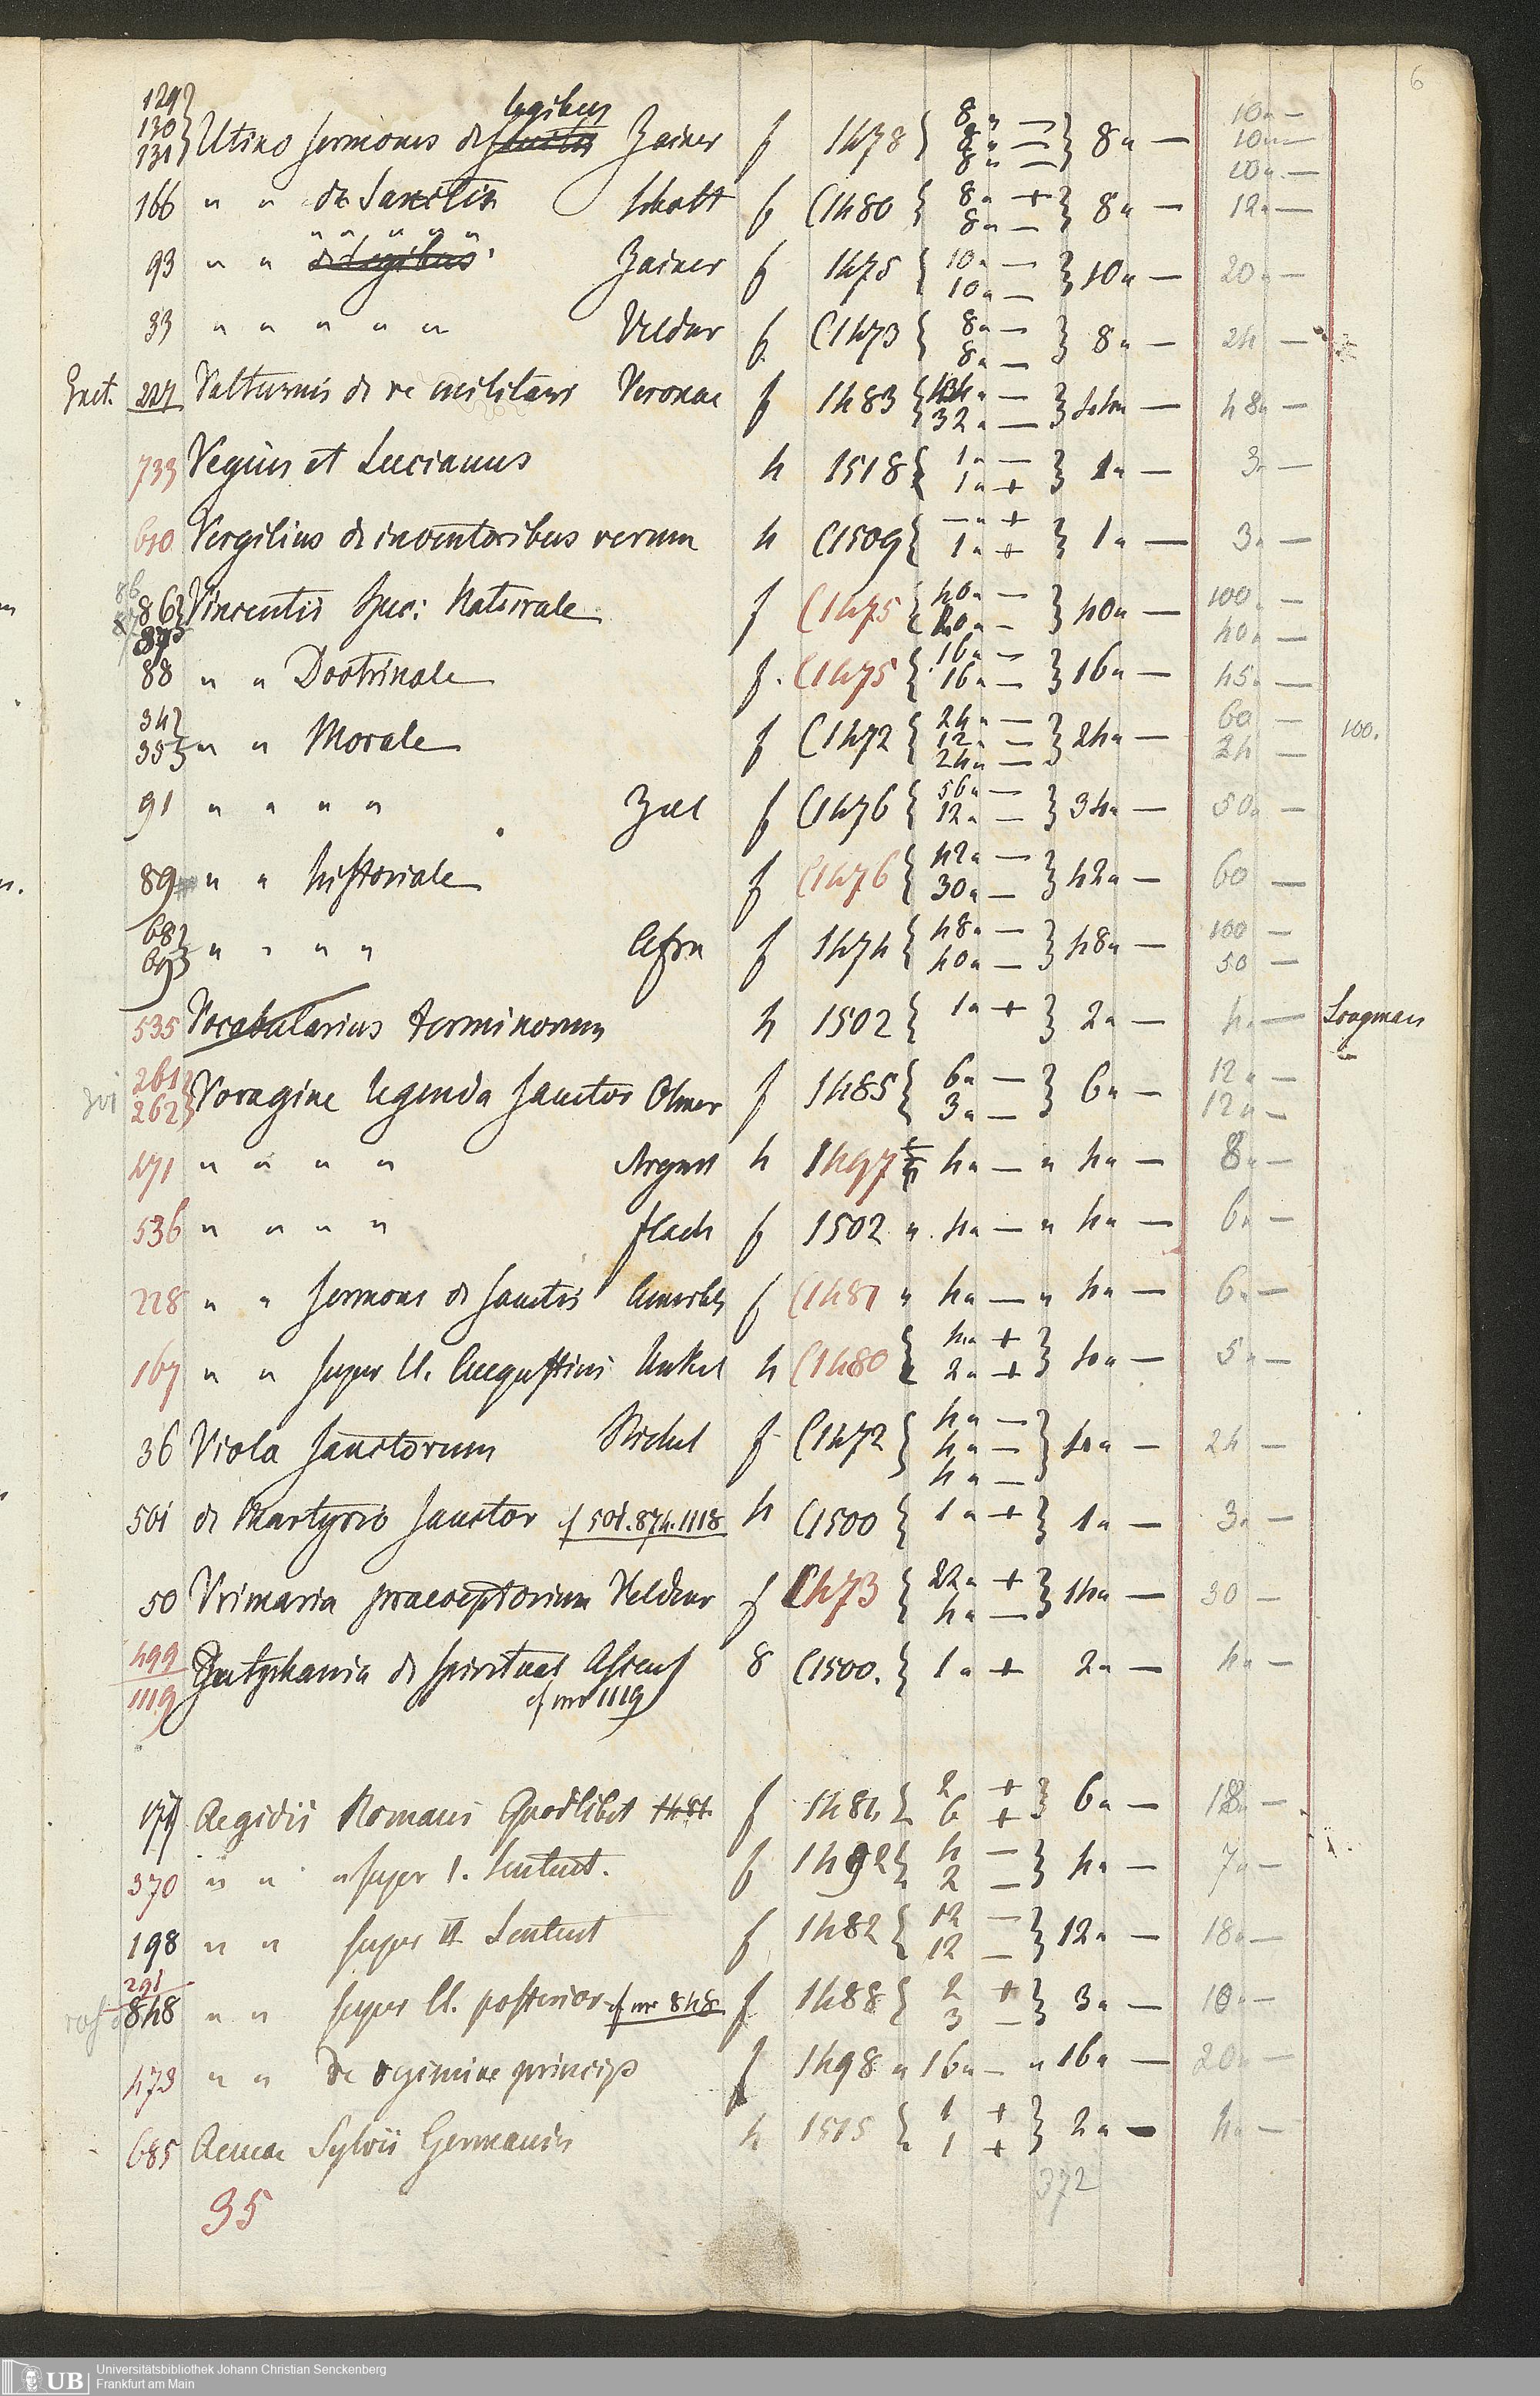 6
129 130 131 } Utino sermones de legibus Zainer f 1478 { 8 „ — 8 „ — 8 „ — } 8 „ — 10 „ — 10 „ — 10 „ —
166 „ „ de Sanctis Schott f (1480 { 8 „ + 8 „ — } 8 „ — 12 „ —
93 „ „ „ „ „ „ „ Zainer f 1475 { 10 „ — 10 „ — } 10 „ — 20 „ —
33 „ „ „ „ „ Veldner f (1473 { 8 „ — 8 „ — } 8 „ — 24 —
224 Valturius de re militari Veronae f 1483 { „ — 32 „ — } — 48 „ —
733 Vegius et Lucianus 4 1518 { 1 „ — 1 „ + } 1 „ — 3 „ —
610 Vergilius de inventoribus rerum 4 (1509 { — „ + 1 „ + } 1 „ — 3 „ —
86 87 86 } 87 } Vincentii Spec: Naturale f (1475 { 40 „ — „ — } 40 „ — 100 „ — 40 „ —
88 „ „ Doctrinale f. (1475 { 16 „ — 16 „ — } 16 „ — 45 „ —
34 35 } „ „ Morale f (1472 { 24 „ — 12 „ — 24 „ — } 24 „ — 60 — 24 — 100.
91 „ „ „ „ Zell f (1476 { 56 „ — 12 „ — } 34 „ — 50 „ —
89 „ „ historiale f (1476 { 42 „ — 30 „ — } 42 „ — 60 —
68 69 } „ „ „ „ Afra f 1474 { 48 „ — 40 „ — } 48 „ — 100 — 50 —
535 Vocabularius terminorum 4 1502 { 1 „ + } 2 „ — 4 „ — Longman
261 262 } Voragine legenda sanctor Olmer f 1485 { 6 „ — 3 „ — } 6 „ — 12 „ — 12 „ —
471 „ „ „ „ Argent 4 1497 4 „ — „ 4 „ — 8 „ —
536 „ „ „ „ flach f 1502 „ 4 „ — „ 4 „ — 6 „ —
228 „ „ sermones de sanctis f (1481 „ 4 „ — „ 4 „ — 6 „ —
167 „ „ super ll. Augustini Unkel 4 (1480 { 4 „ + 2 „ + } „ — 5 „ —
36 Viola sanctorum Richel f (1472 { 4 „ — 4 „ — 4 „ — } „ — 24 —
501 de Martyrio sanctor cf 501. 874. 1118 4 (1500 { 1 „ + } 1 „ — 3 „ —
50 Vrimaria praeceptorium Veldner f (1473 { 22 „ + 4 „ — } 14 „ — 30 —
499 1119 Zutphania de spiritual Ascens 8 (1500. { 1 „ + 2 „ — 4 „ —
cf nro 1119
Aegidii Romani Quodlibet f 1481 { 2 + 6 + } 6 „ — 18 „ —
370 „ „ „ super I. Sentent. f 1492 { 4 — 2 — } 4 „ — 7 „ —
198 „ „ super II Sentent f 1482 { 12 — 12 — } 12 „ — 18 „ —
291 848 „ „ super ll. posterior cf nro 848 f 1488 { 2 + 3 — } 3 „ — 10 „ —
473 „ „ De regimine princip f 1498 „ 16 „ — „ 16 „ — 20 „ —
685 Aeneae Sylvii Germania 4 1515 { 1 + 1 + } 2 „ — 4 „ —
35 372
UB Universitätsbibliothek Johann Christian Senckenberg
Frankfurt am Main